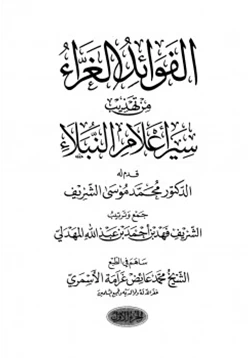 الفوائد الغراء
من تهذيب
سير أعلام النبلاء
قدم له
الدكتور محمد موسى الشريف
جمع وترتيب
الشريف فهد بن أحمد بن عبد الله المهدلي
ساهم في الطبع
الشيخ محمد عايض غرامة الأسمري
غفر الله له ولوالديه ولجميع المسلمين